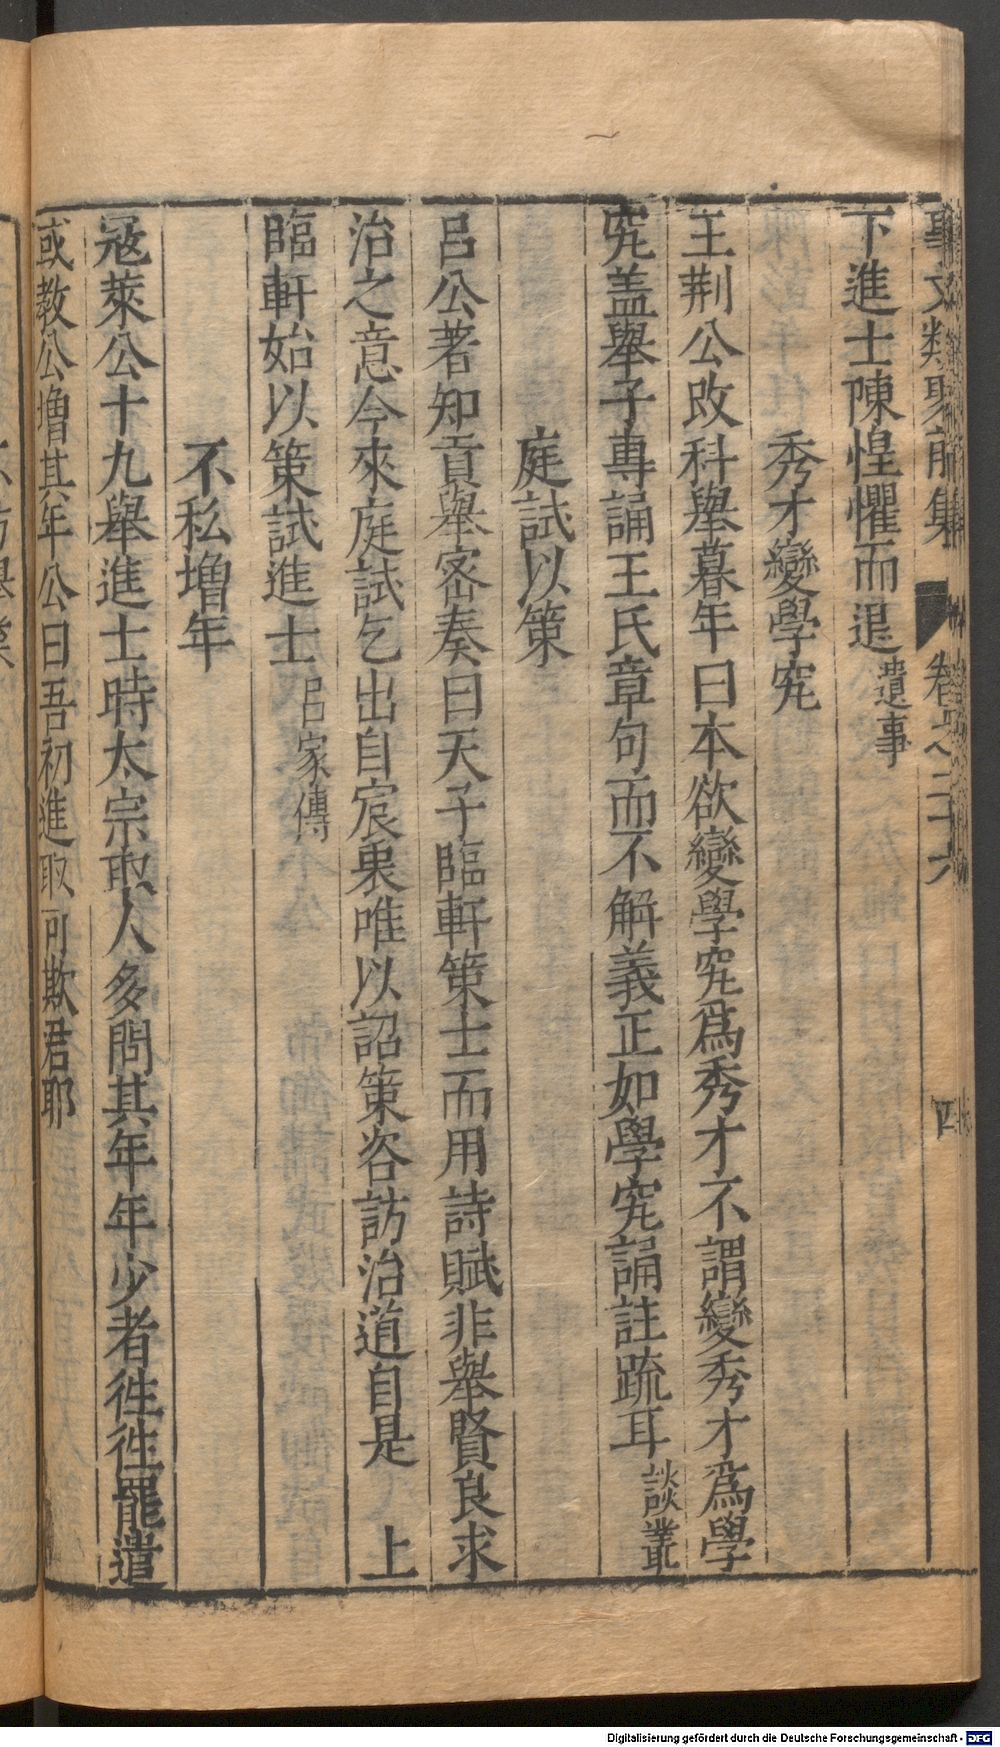 事文類聚前集 卷之二十六 四
下進士陳惶懼而退遺事
秀才變學究
王荆公改科舉暮年曰本欲變學究爲秀才不謂變秀才爲學
究盖舉子專誦王氏章句而不解義正如學究誦註䟽耳談叢
庭試以策
吕公著知貢舉密奏曰天子臨軒策士而用詩賦非舉賢良求
治之意今來庭試乞出自宸衷唯以詔策咨訪治道自是 上
臨軒始以策試進士吕家傳
不私增年
冦萊公十九舉進士時太宗取人多問其年年少者徃徃罷遣
或教公增其年公曰吾初進取可欺君耶
Digitalisierung gefördert durch die Deutsche Forschungsgemeinschaft - DFG